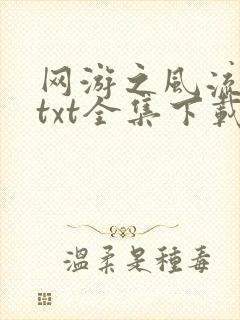 网游之风流
txt全集下载
温柔是種毒